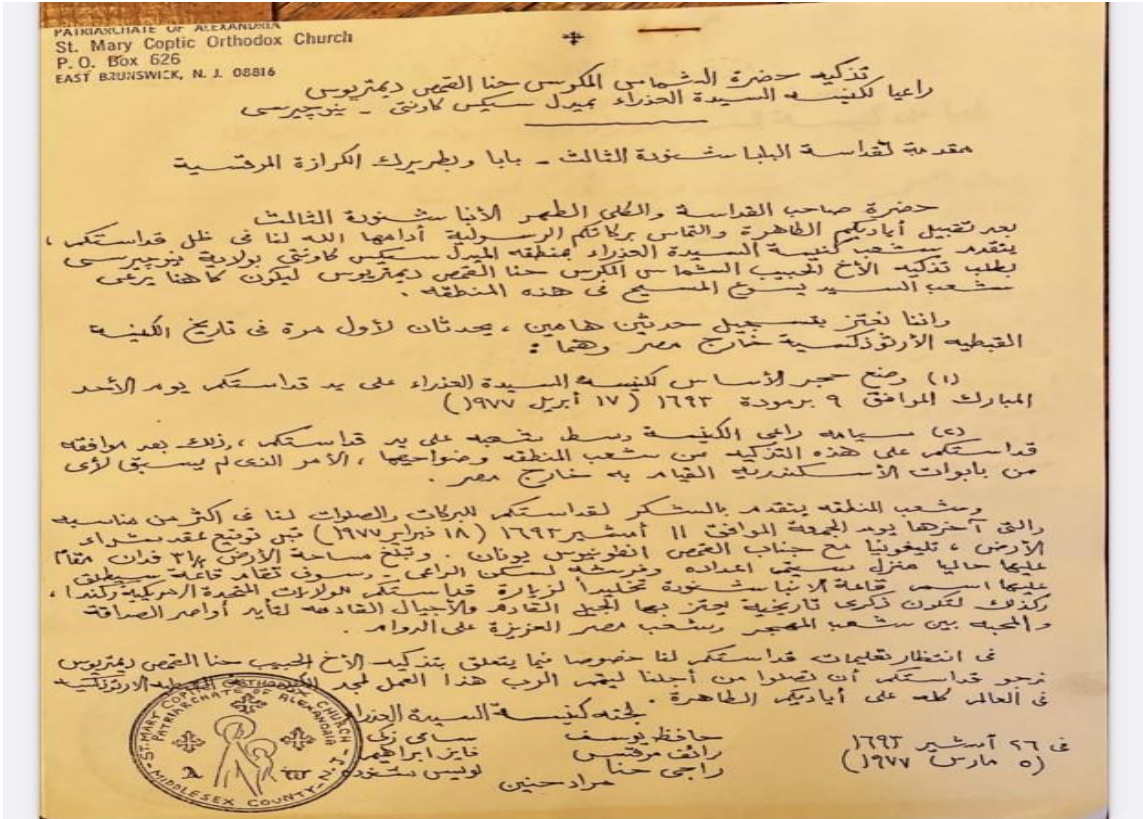 PATRIARCHATE OF ALEXANDRIA
St. Mary Coptic Orthodox Church
P. O. Box 626
EAST BRUNSWICK, N. J. 08816
تذكيه حضرة الشماس المكرس حنا القمص ديمتريوس
راعيا لكنيسه السيدة العذراء بميدل سيكس كاونتى - نيوجيرسى
مقدمة لقداسة البابا شنودة الثالث - بابا وبطريرك الكرازة المرقسية
حضرة صاحب القداسة والكلى الطهر الأنبا شنودة الثالث
بعد تقبيل أياديكم الطاهرة والتماس بركاتكم الرسولية أدامها الله لنا فى ظل قداستكم ،
يتقدم شعب كنيسة السيدة العذراء بمنطقه الميدل سيكس كاونتى بولاية نيوجيرسى
بطلب تذكيه الأخ الحبيب الشماس المكرس حنا القمص ديمتريوس ليكون كاهنا يرعى
شعب السيد يسوع المسيح فى هذه المنطقه .
واننا نعتز بتسجيل حدثين هامين ، يحدثان لأول مرة فى تاريخ الكنيسة
القبطيه الأرثوذكسية خارج مصر وهما :
(١) وضع حجر الأساس لكنيسه السيدة العذراء على يد قداستكم يوم الأحد
المبارك الموافق ٩ برمودة ١٦٩٣ (١٧ أبريل ١٩٧٧)
(٢) سيامه راعى الكنيسة وسط شعبه على يد قداستكم ، وذلك بعد موافقه
قداستكم على هذه التذكيه من شعب المنطقه وضواحيها ، الأمر الذى لم يسبق لأى
من بابوات الأسكندريه القيام به خارج مصر .
وشعب المنطقه يتقدم بالشكر لقداستكم للبركات والصلوات لنا فى أكثر من مناسبه
والتى آخرها يوم الجمعة الموافق ١١ أمشير ١٦٩٣ (١٨ فبراير ١٩٧٧) قبل توقيع عقد شراء
الأرض ، تليفونيا مع جناب القمص انطونيوس يونان . وتبلغ مساحة الأرض ٣١/٤ فدان مقام
عليها حاليا منزل سيتم اعداده وفرشه لسكن الراعى - وسوف تقام قاعة سيطلق
عليها اسم قاعة الانبا شنودة تخليداً لزيارة قداستكم للولايات المتحدة الامريكية وكندا ،
وكذلك لتكون ذكرى تاريخية يعتز بها الجيل القادم والأجيال القادمه لتأيد أواصر الصداقة
والمحبه بين شعب المهجر وشعب مصر العزيزة على الدوام .
فى انتظار تعليمات قداستكم لنا خصوصا فيما يتعلق بتذكيه الأخ الحبيب حنا القمص ديمتريوس
نرجو قداستكم أن تصلوا من أجلنا ليتمم الرب هذا العمل لمجد القبطيه الارثوذكسية
فى العالم كله على أياديكم الطاهرة .
لجنه كنيسة السيدة العذراء
حافظ يوسف سامى زكى
رائف مرقس فايز ابراهيم
راجى حنا لويس شنودة
مراد حنين
فى ٢٦ أمشير ١٦٩٣
(٥ مارس ١٩٧٧)
ST. MARY COPTIC ORTHODOX CHURCH
PATRIARCHATE OF ALEXANDRIA
MIDDLESEX COUNTY - N.J.